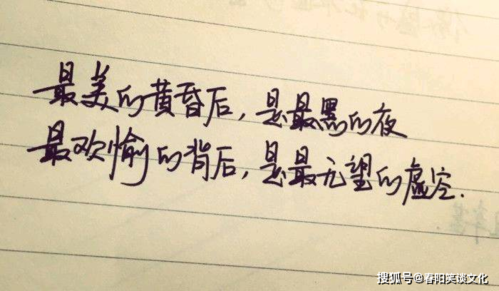 最美的黄昏后，是最黑的夜
最欢愉的背后，是最无望的虚空.
搜狐号@春阳笑谈文化